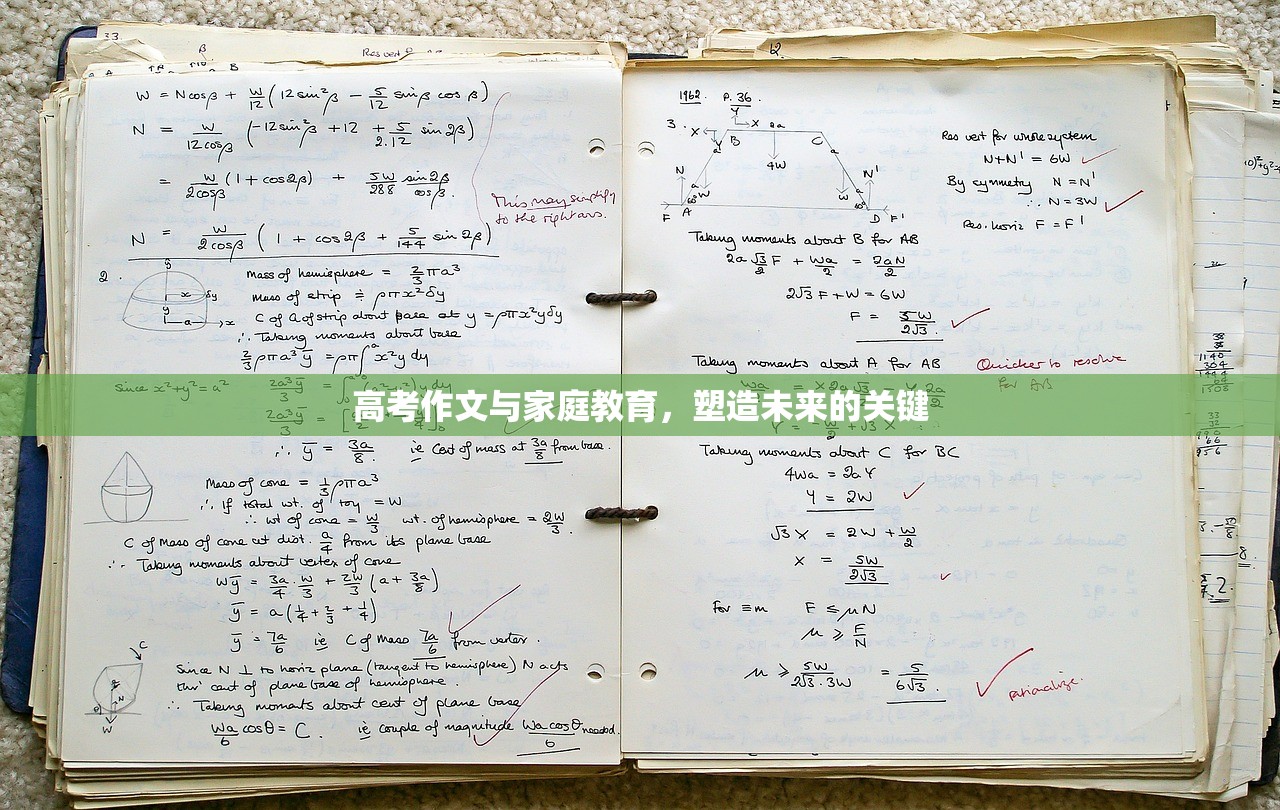 33.
W = Ncosβ + W/12 (12sin²β − 5/12 sinβ cosβ)
N = W/12cosβ (−12sin²β + 12 + 5/2.12 sin2β)
= W/2cosβ (1 + cos2β) + 5W/288 sin2β/cosβ.
This may simplify
to the right ans.
N = W/2cosβ (1 + cos2β + 5/144 sin2β)
2.
Mass of hemisphere = 2/3 πa³
mass of strip ≑ ρπx²δy
C of G of strip about base at y = ρπx²yδy
∴ Taking moments about base
2/3 ρπa³ȳ = ρπ∫ᵃ x²y dy
since x²+y²=a²
高考作文与家庭教育，塑造未来的关键
∴ ȳ = 3a/8 ie Cent of mass at 3a/8 from base.
Mass of cone = 1/3 ρπa³
∴ If total wt. of toy = W
∴ wt of cone = W/3 wt. of hemisphere = 2W/3.
C of Mass of cone at dist. a/4 from its plane base
∴ Taking moments about vertex of cone
Wȳ = 3a/4 · W/3 + 2W/3 (a + 3a/8)
ȳ = a(1/4 + 2/3 + 1/4)
ȳ = 7a/6 ie C of Mass 7a/6 from vertex.
Since N ⊥ to horiz plane (tangent to hemisphere) N acts
thro' cent of plane base of hemisphere.
∴ Taking moments about cent of plane base
Wa/6 cosθ = C. ie couple of magnitude Wa cosθ/6 needed.
1962. P.36.
3.
Res vert for whole system
N+N' = 6W
By symmetry N = N'
∴ N = 3W
Res. horiz F = F'
Taking moments about B for AB
2a √3/2 F + Wa/2 = 2aN/2
2√3 F + W = 6W
F = 5W/2√3.
Taking moments about A for AB
Quicker to resolve
for AB
Taking moments about C for BC
4Wa = 2aY
Y = 2W
√3 X = 2W + W/2
X = 5W/2√3
For ≡m F ≤ μN
μ ≥ F/N
μ ≥ 5W/2√3.3W = 5/6√3.
rationalize.